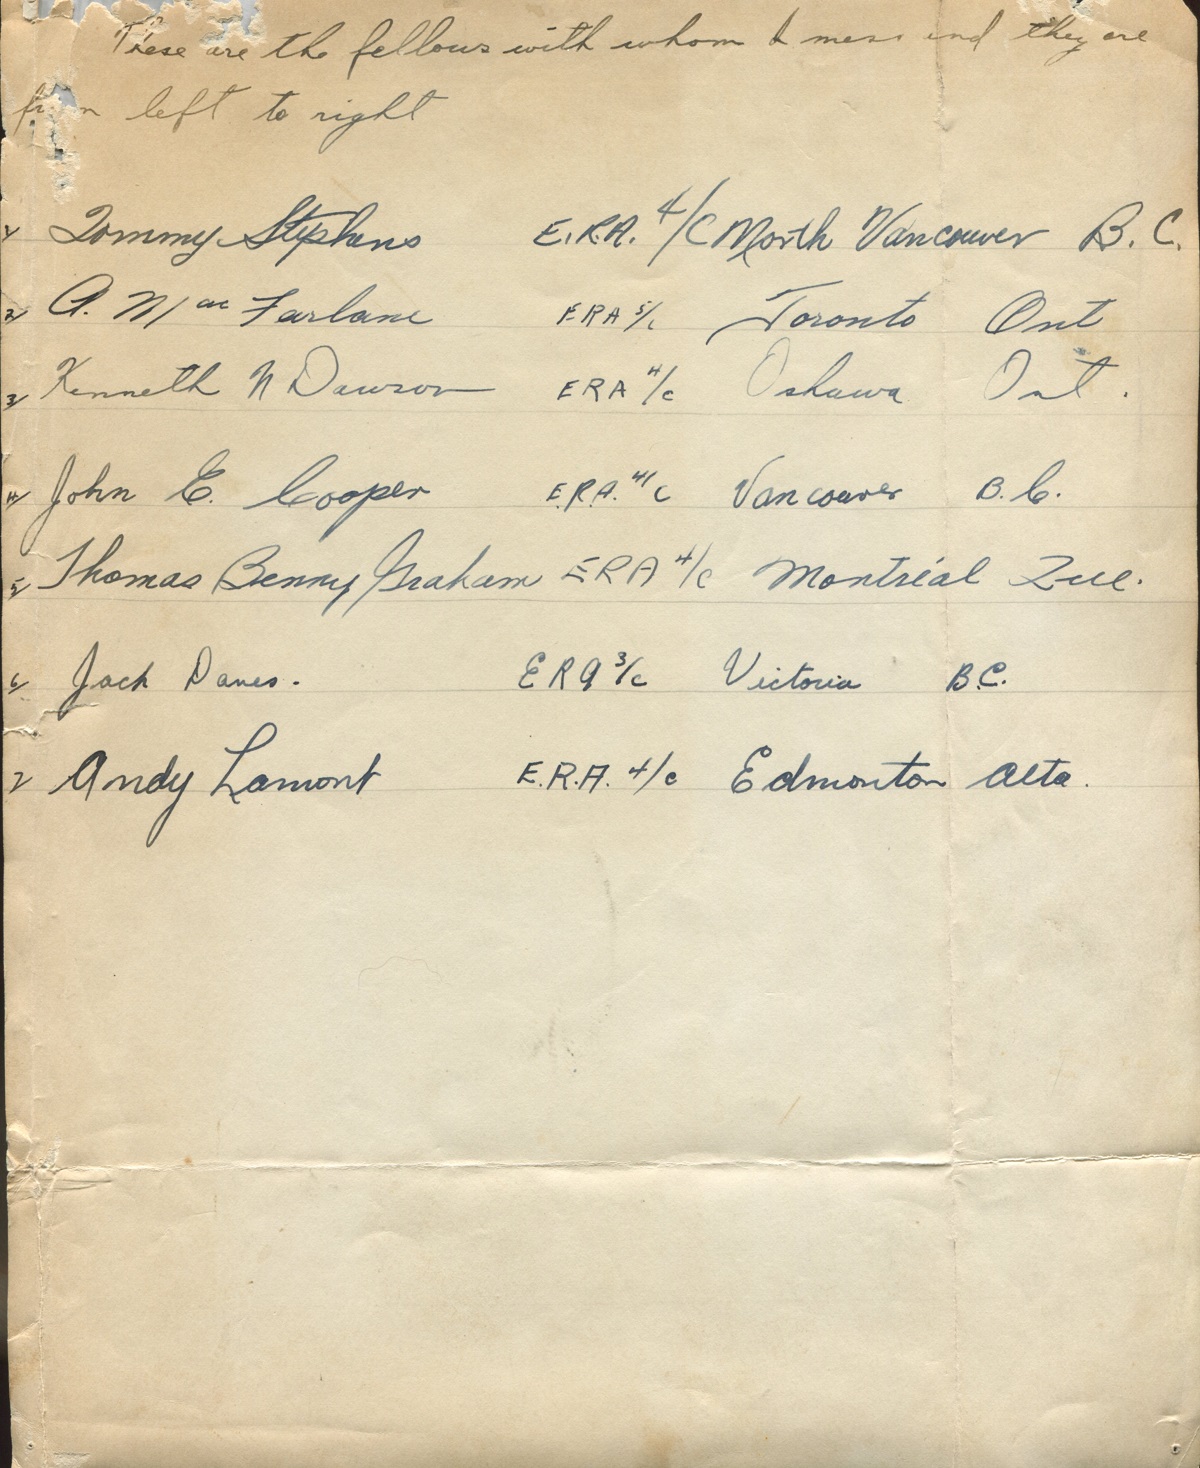 These are the fellows with whom I mess and they are
from left to right
1/ Tommy Stephens E.R.A. 4/C North Vancouver B.C.
2/ A. MacFarlane ERA 5/c Toronto Ont
3/ Kenneth N Dawson ERA 4/c Oshawa Ont.
4/ John E. Cooper E.R.A. 4/c Vancouver B.C.
5/ Thomas Benny Graham ERA 4/c Montréal Que.
6/ Jack Danes. ERA 3/c Victoria B.C.
7 Andy Lamont E.R.A. 4/c Edmonton Alta.